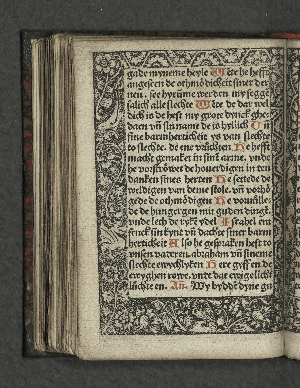 gade myneme heyle Wēte he hefft
angeseen de othmödicheit siner der
nen. see hyrume werden my segge
salich alle slechte Wēte de dar wel
dich is de heft my grote dynck ghe
daen vn̄ sin name de is hyllich Vn̄
sine barmherticheit ys van slechte
to slechte. de ene vrüchten He hefft
macht gemaket in sint arme. vnde
he vorströwet de houerdigen in den
danken sines herten He settede de
weldigen van deme stole. vn̄ vorhö
gede de othmödigen He vorüllede
de hungergen mit guden dingē.
vnde leth de ryke ydel Israhel en
sinck sin kynt vn̄ dachte siner barm
herticheit Also he gespraken heft to
vnsen vaderen. abraham vn̄ sineme
slechte ewychlyken Here gyff en de
ewyghen rowe. vnde dat ewige licht
lüchte en. An̄. Wy bydde dyne gu